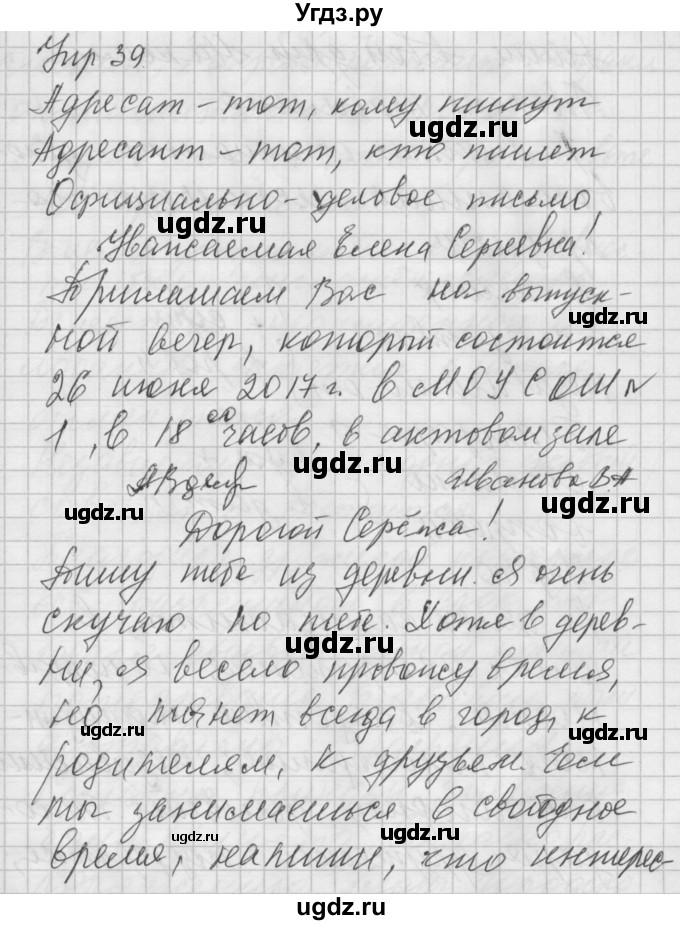 Угдз.ру
Упр 39
Адресат – тот, кому пишут
Адресант – тот, кто пишет
Официально-деловое письмо
Уважаемая Елена Сергеевна!
Приглашаем Вас на выпуск-
ной вечер, который состоится
26 июня 2017 г. в МОУ СОШ №
1, в 18 00 часов, в актовом зале
Иванова В.А
Дорогой Серёжа!
Пишу тебе из деревни. Я очень
скучаю по тебе. Хотя в дерев-
ни, я весело провожу время,
но тянет всегда в город, к
родителям, к друзьям. Чем
ты занимаешься в свободное
время, напиши, что интерес-
ugdz.ru
ugdz.ru
ugdz.ru
ugdz.ru
ugdz.ru
ugdz.ru
ugdz.ru
ugdz.ru
ugdz.ru
ugdz.ru
ugdz.ru
ugdz.ru
ugdz.ru
ugdz.ru